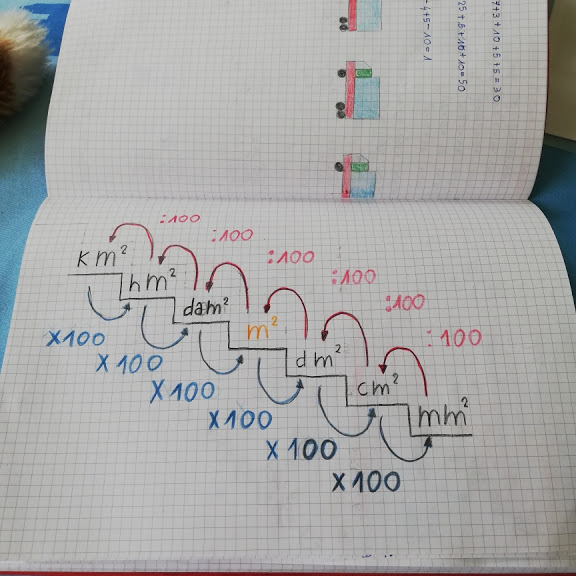 7+3+10+5+5=30
25+5+10+10=50
-4+5-10=1
:100
km²
:100
hm²
:100
dam²
:100
m²
:100
dm²
:100
cm²
mm²
x100
x100
x100
x100
x100
x100